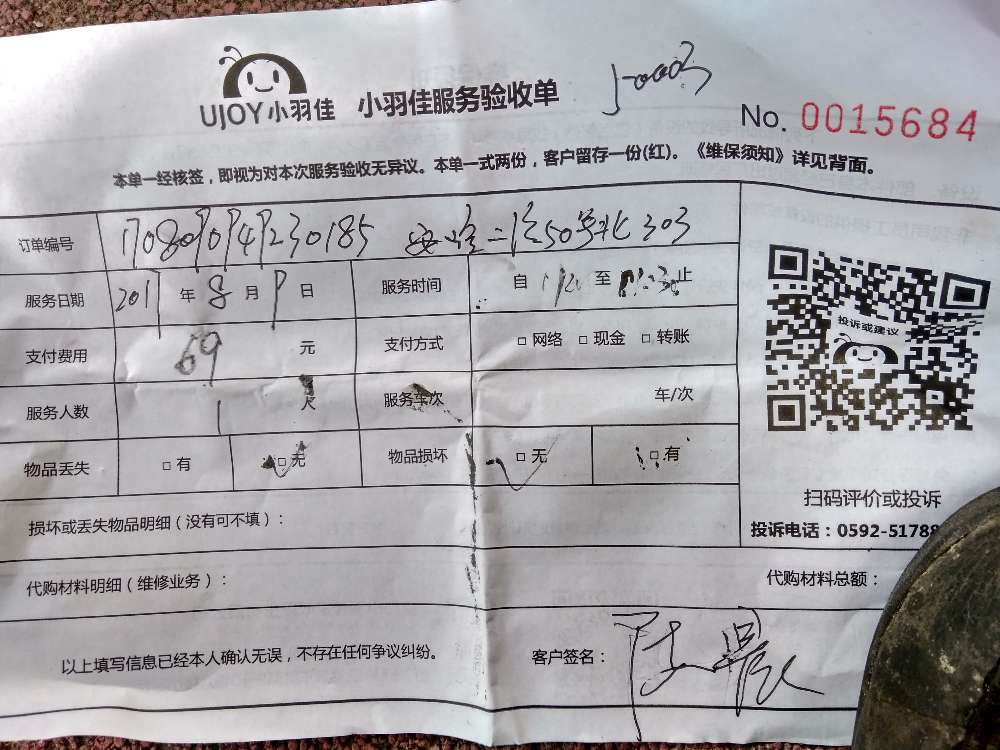 UJOY小羽佳 小羽佳服务验收单
No. 0015684
本单一经核签，即视为对本次服务验收无异议。本单一式两份，客户留存一份(红)。《维保须知》详见背面。
订单编号 303
服务日期 2017 年 8 月 9 日 服务时间 自 至 止
支付费用 69 元 支付方式 □ 网络 □ 现金 □ 转账
服务人数 1 人 服务车次 车/次
物品丢失 □ 有 □ 无 物品损坏 □ 无 □ 有
投诉或建议
扫码评价或投诉
投诉电话：0592-5178
损坏或丢失物品明细（没有可不填）：
代购材料明细（维修业务）： 代购材料总额：
以上填写信息已经本人确认无误，不存在任何争议纠纷。 客户签名：